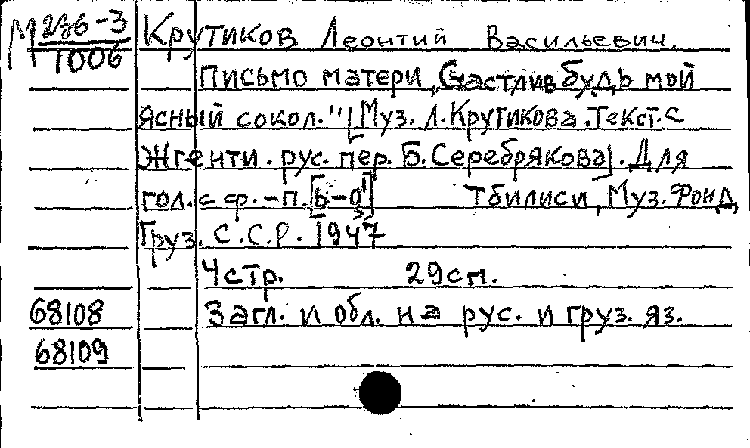 М 236-3 Крутиков Леонтий Васильевич.
1006
Письмо матери „Счастлив будь мой
ясный сокол." [Муз. Л. Крутикова. Текст. С
Жгенти. рус. пер. Б. Серебрякова]. Для
гол. с ф.-п. Тбилиси, Муз. Фонд,
Груз. С.С.Р. 1947
4 стр. 29 см.
68108 Загл. и обл. на рус. и груз. яз.
68109